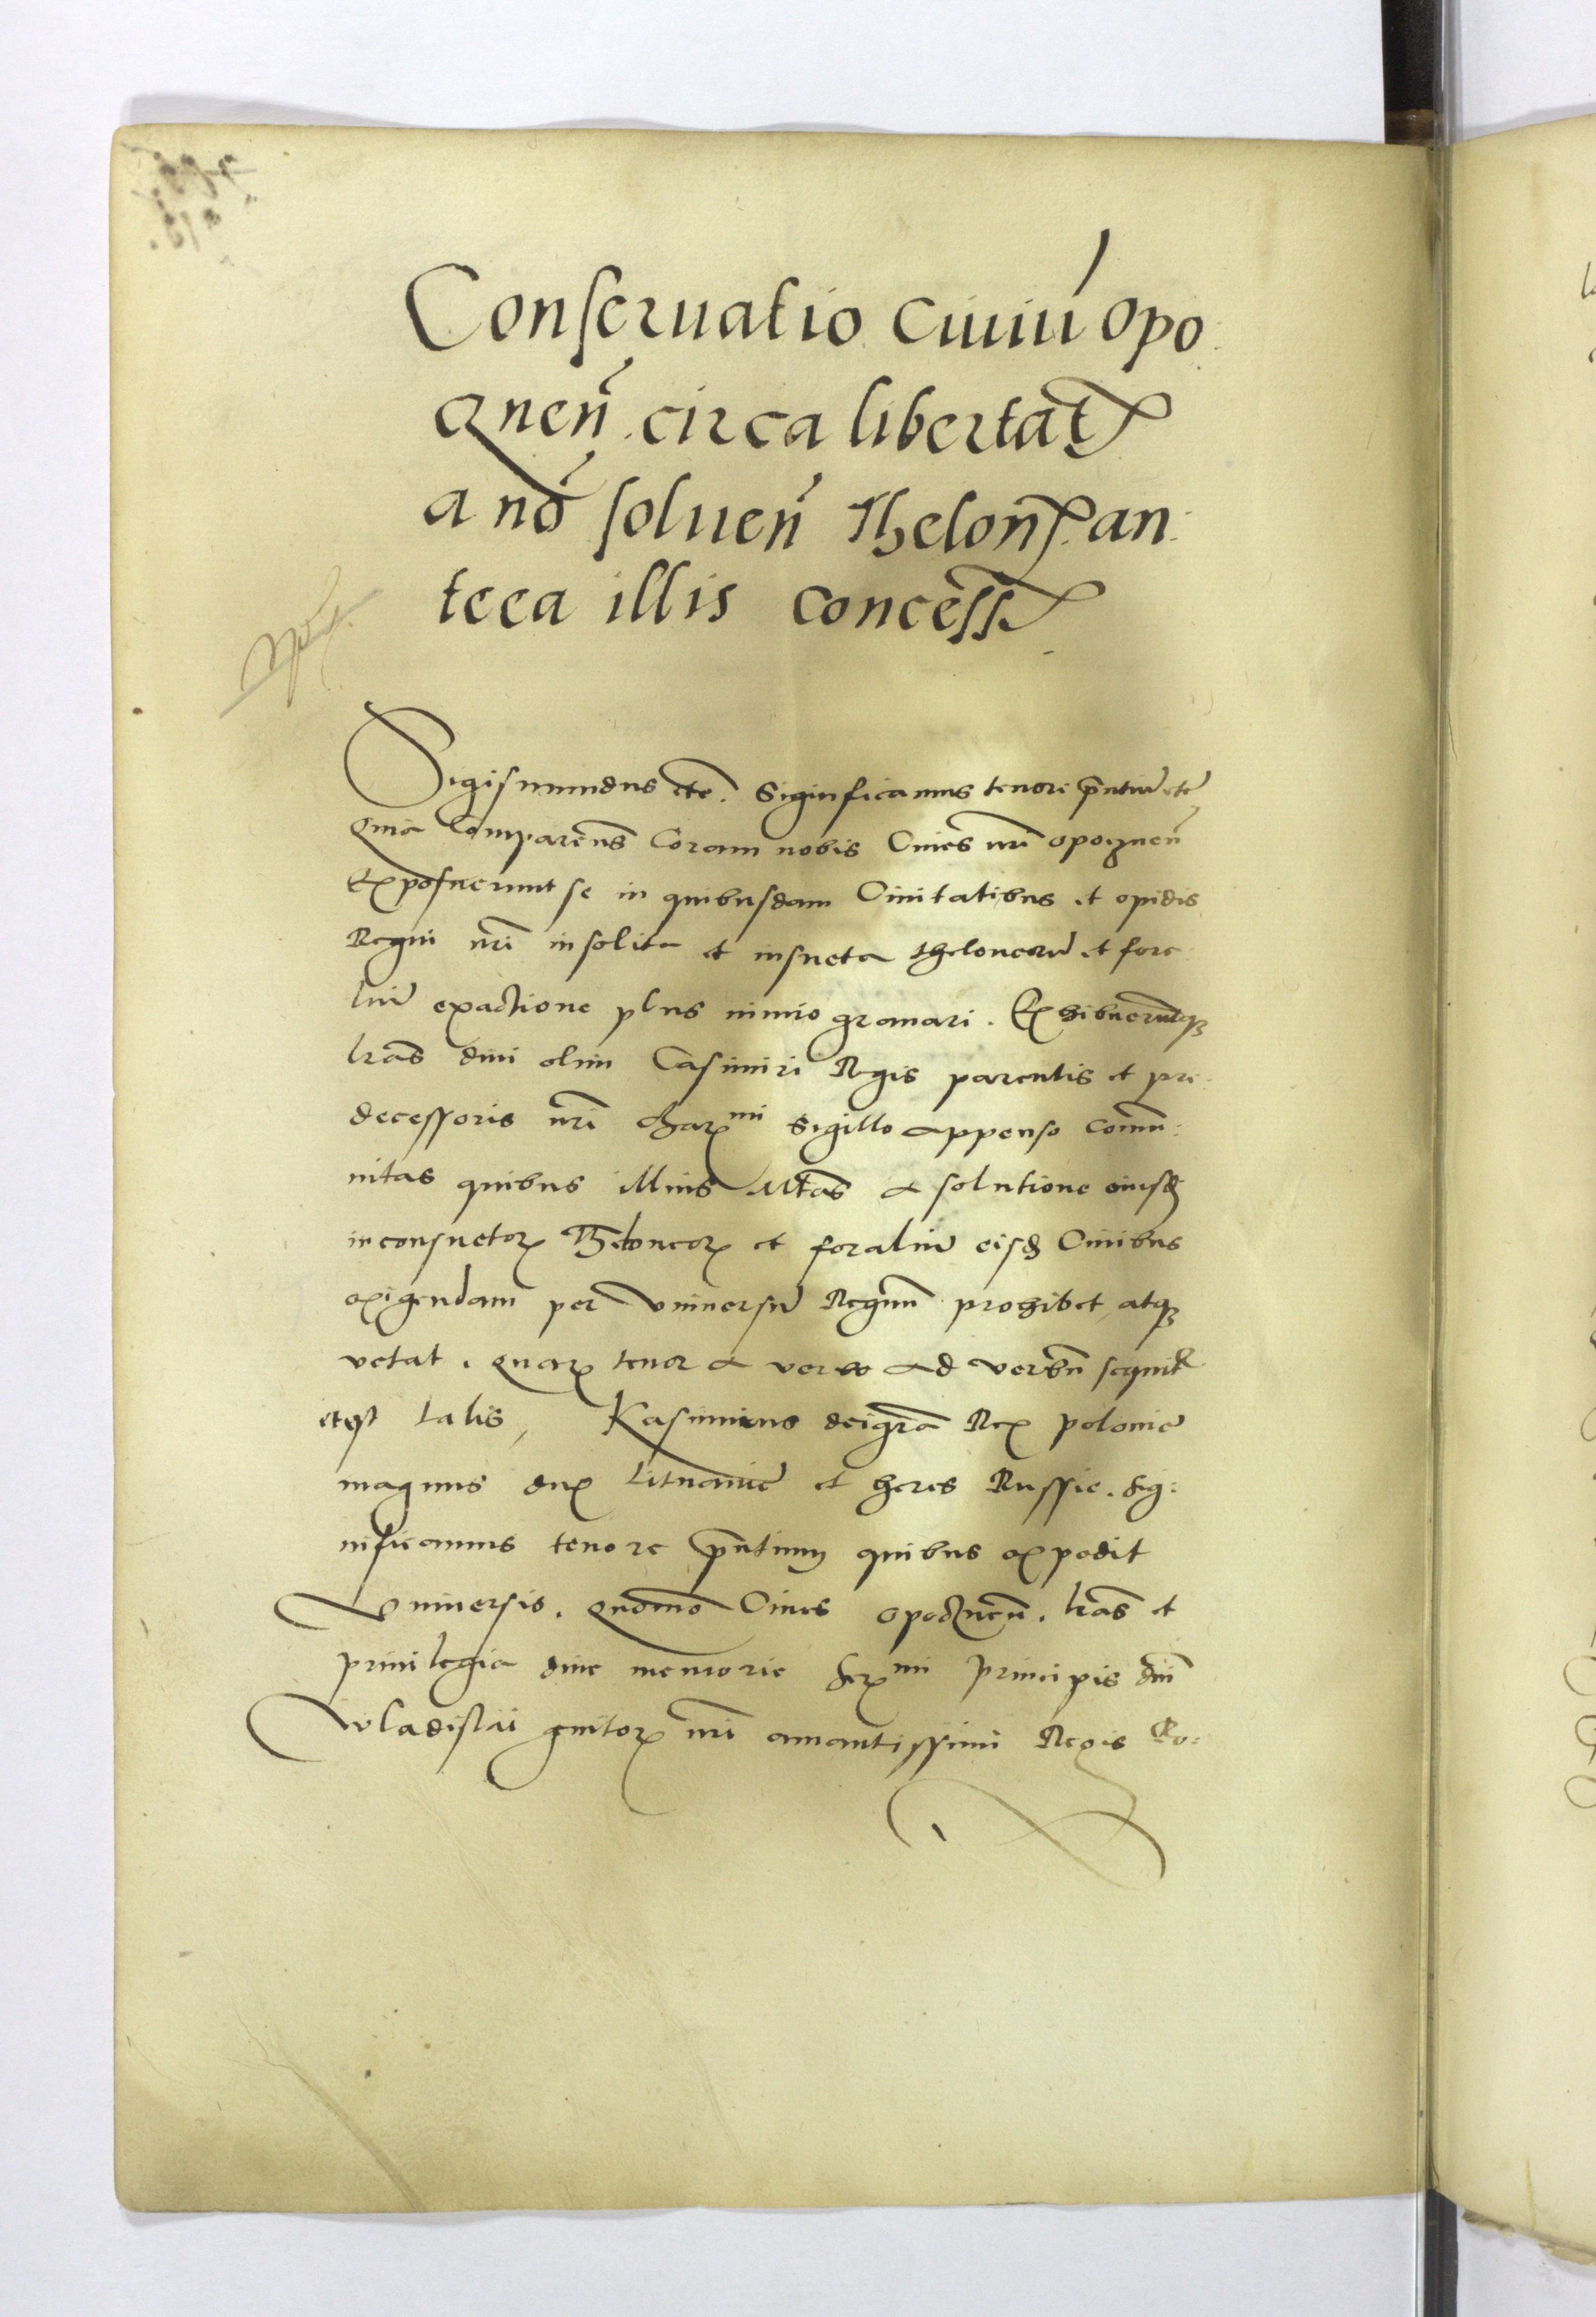 Conseruatio Ciuiū opo
cznen̄ circa libertat̄
a nō soluen̄ Thelon̄ an
teea illis concess
Sigismundus etc. Significamus tenore p̄ntiū etc
quia Comparen̄s Coram nobis Ciues nr̄i opocznen̄
Exposuerunt se in quibusdam Ciuitatibus et opidis
Regni nr̄i insolita et insueta theloneorū et fora
liū exactione plus nimio grauari. Exhibuerūtqȝ
lr̄as diui olim Casimiri Regis parentis et pre
decessoris nr̄i charꝫmi Sigillo appenso Comū:
nitas quibus illius Mtās a solutione eiusdꝫ
inconsuetorꝫ Theloneorꝫ et foraliū eisdꝫ Ciuibus
exigendam per vniuersū Regnum prohibet atqȝ
vetat. quarꝫ tenor a verbo ad verbū sequit̄
etqȝ talis, Kasimirus dei gr̄a Rex polonie
magnus dux Lituanie et heres Russie. sig:
nificamus tenore p̄ntium quibus expedit
vniuersis. quomō Ciues opocznen̄. lr̄as et
priuilegia diue memorie Serꝫmi principis dn̄i
wladislai genitorꝫ nr̄i amantissimi Regis Po: